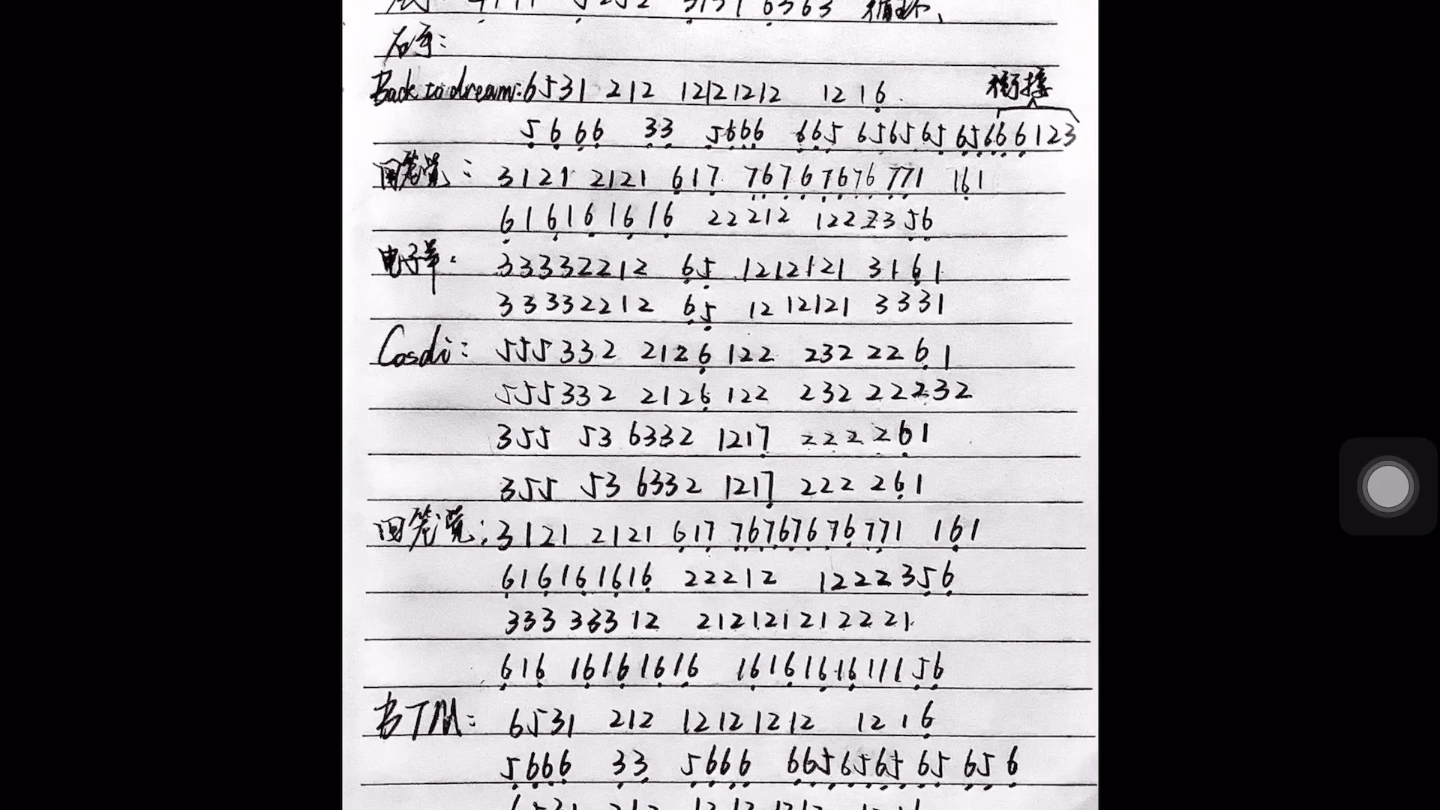 5252 3131 6363 循环、
右手:
Back to dream: 6531 212 12121212 1216. 衔接
5666 33 5666 665 656565 65666123
回笼觉: 3121 2121 617 76767676771 161
616161616 22212 1222356
电子羊: 33332212 65 1212121 3161
33332212 65 1212121 3331
Cosdi: 555332 2126 122 232 2261
555332 2126 122 232 222232
355 53 6332 1217 222261
355 53 6332 1217 222 261
回笼觉: 3121 2121 617 76767676771 161
616161616 22212 1222356
333 33312 212121212221
616 16161616 1616161611156
BTM: 6531 212 12121212 1216
5666 33 5666 6656565 65 656
6531 212 1212 1212 1216